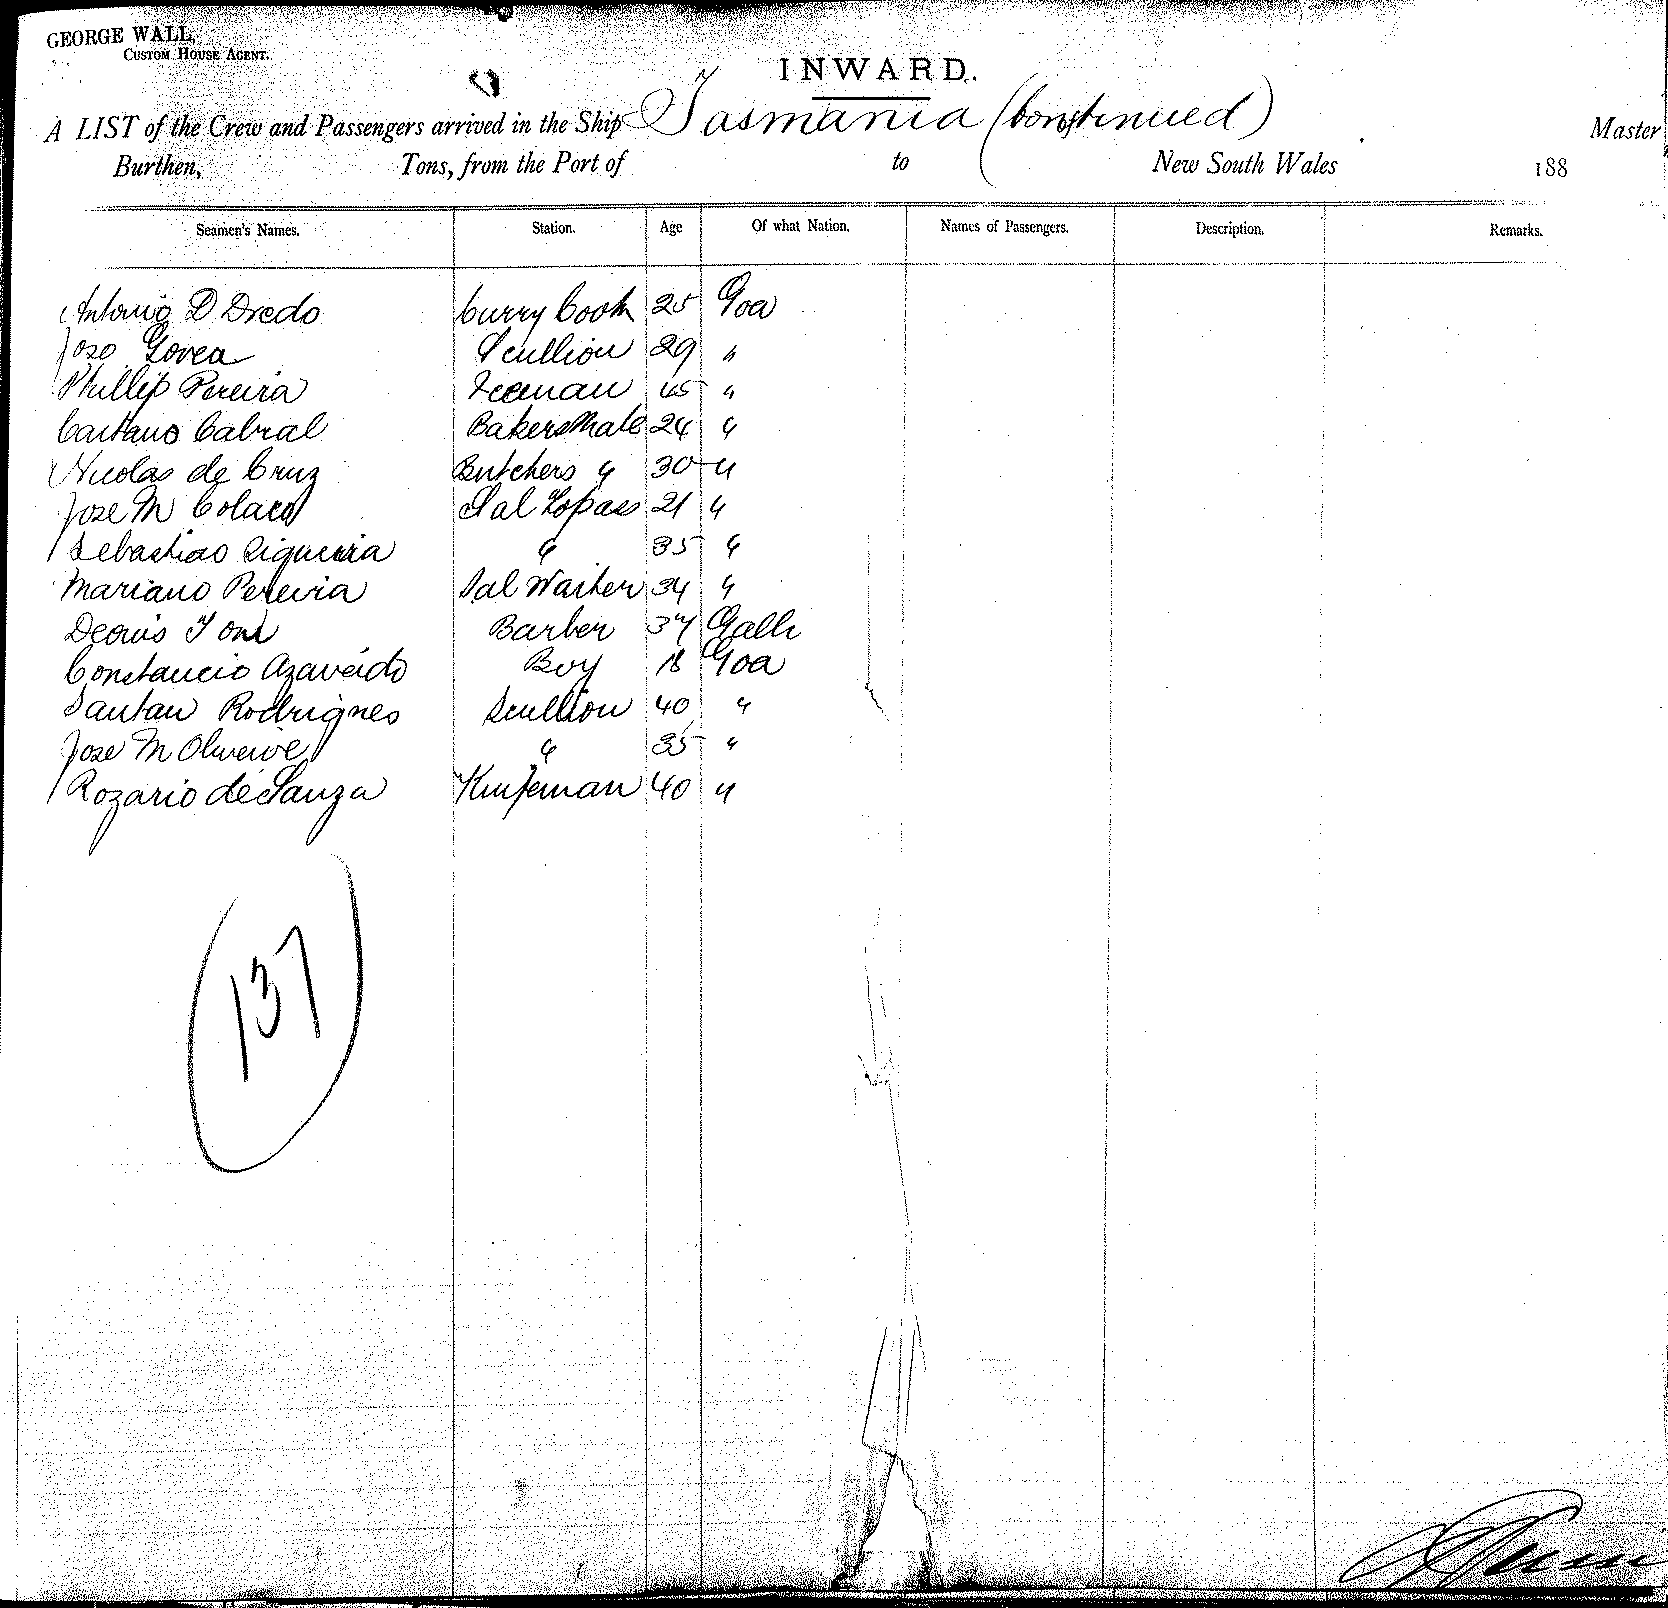 GEORGE WALL,
CUSTOM HOUSE AGENT.
INWARD.
A LIST of the Crew and Passengers arrived in the Ship Tasmania (Continued) Master
Burthen, Tons, from the Port of to New South Wales 188
Seamen's Names. Station. Age Of what Nation. Names of Passengers. Description. Remarks.
Antonio D Dredo Curry Cook 25 Goa
Jose Govea Scullion 29 "
Phillip Pereira 45 "
Caitano Cabral Bakers Mate 24 "
Nicolas de Cruz Butchers " 30 "
Jose M Colaco Sal Topass 21 "
Sebastiao Siqueira " 35 "
Mariano Pereira Sal Waiter 34 "
Barber 37 Galle
Constancio Azavedo Boy 18 Goa
Santan Rodrignes Scullion 40 "
Jose M Oliveire " 35 "
Rozario de Sauza Knifeman 40 "
137